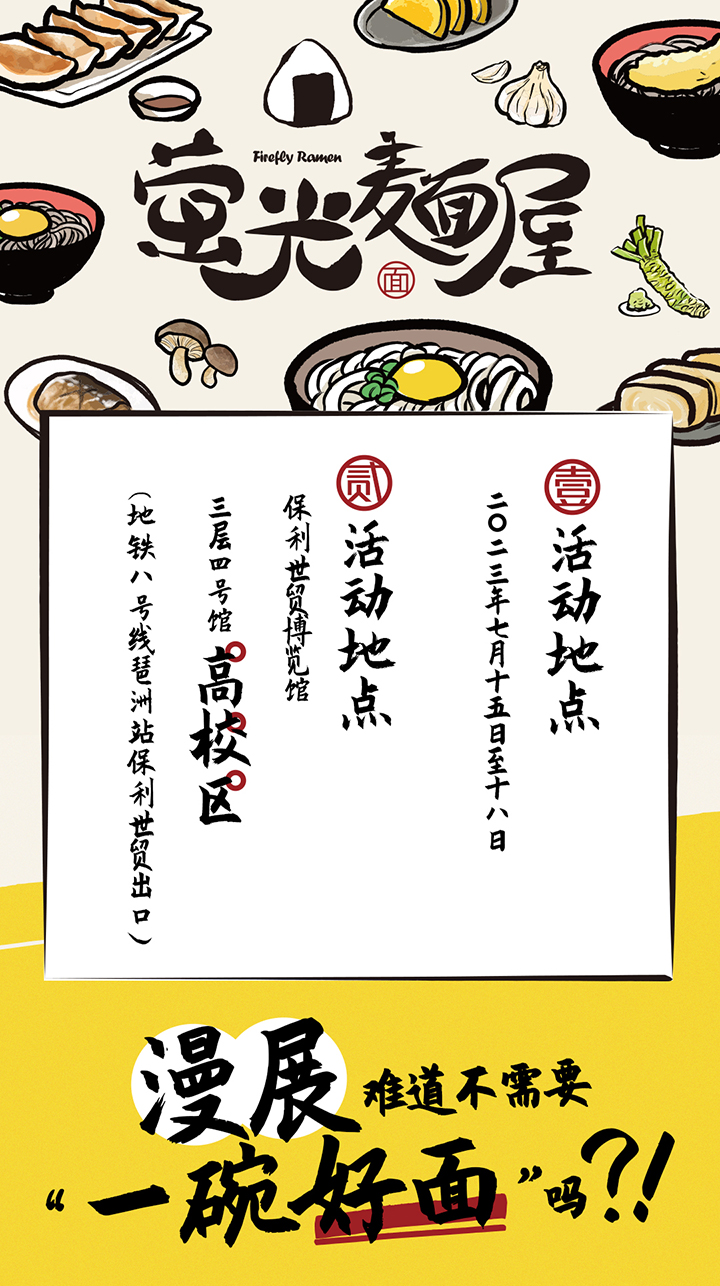 Firefly Ramen
萤光麵屋
面
壹
活动地点
二〇二三年七月十五日至十八日
贰
活动地点
保利世贸博览馆
三层四号馆高校区
(地铁八号线琶洲站保利世贸出口)
漫展难道不需要
“一碗好面”吗?!